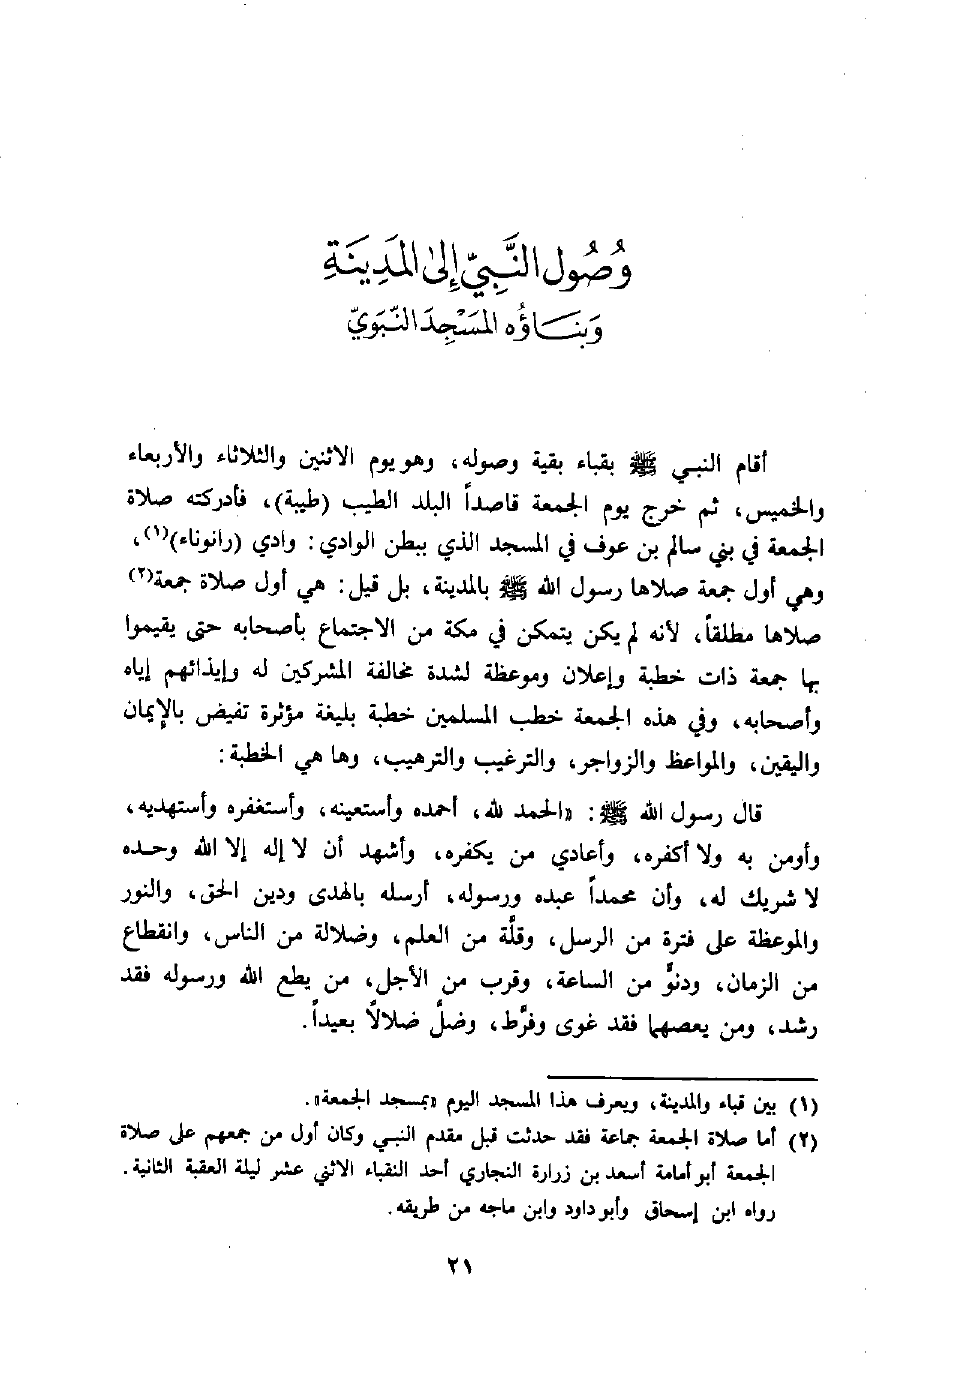 وُصُول النَّبِيّ إِلىٰ المَدِينَةِ
وَبِنَاؤُه المَسْجِدَ النَّبَوِيّ
أقام النبي ﷺ بقباء بقية وصوله، وهو يوم الاثنين والثلاثاء والأربعاء
والخميس، ثم خرج يوم الجمعة قاصداً البلد الطيب (طيبة)، فأدركته صلاة
الجمعة في بني سالم بن عوف في المسجد الذي ببطن الوادي: وادي (رانوناء)(١)،
وهي أول جمعة صلاها رسول الله ﷺ بالمدينة، بل قيل: هي أول صلاة جمعة(٢)
صلاها مطلقاً، لأنه لم يكن يتمكن في مكة من الاجتماع بأصحابه حتى يقيموا
بها جمعة ذات خطبة وإعلان وموعظة لشدة مخالفة المشركين له وإيذائهم إياه
وأصحابه، وفي هذه الجمعة خطب المسلمين خطبة بليغة مؤثرة تفيض بالإيمان
واليقين، والمواعظ والزواجر، والترغيب والترهيب، وها هي الخطبة:
قال رسول الله ﷺ: «الحمد لله، أحمده وأستعينه، وأستغفره وأستهديه،
وأومن به ولا أكفره، وأعادي من يكفره، وأشهد أن لا إله إلا الله وحده
لا شريك له، وأن محمداً عبده ورسوله، أرسله بالهدى ودين الحق، والنور
والموعظة على فترة من الرسل، وقلَّة من العلم، وضلالة من الناس، وانقطاع
من الزمان، ودنوٍّ من الساعة، وقرب من الأجل، من يطع الله ورسوله فقد
رشد، ومن يعصهما فقد غوى وفرَّط، وضلَّ ضلالاً بعيداً.
(١) بين قباء والمدينة، ويعرف هذا المسجد اليوم «بمسجد الجمعة».
(٢) أما صلاة الجمعة جماعة فقد حدثت قبل مقدم النبي وكان أول من جمعهم على صلاة
الجمعة أبو أمامة أسعد بن زرارة النجاري أحد النقباء الاثني عشر ليلة العقبة الثانية.
رواه ابن إسحاق وأبو داود وابن ماجه من طريقه.
٢١